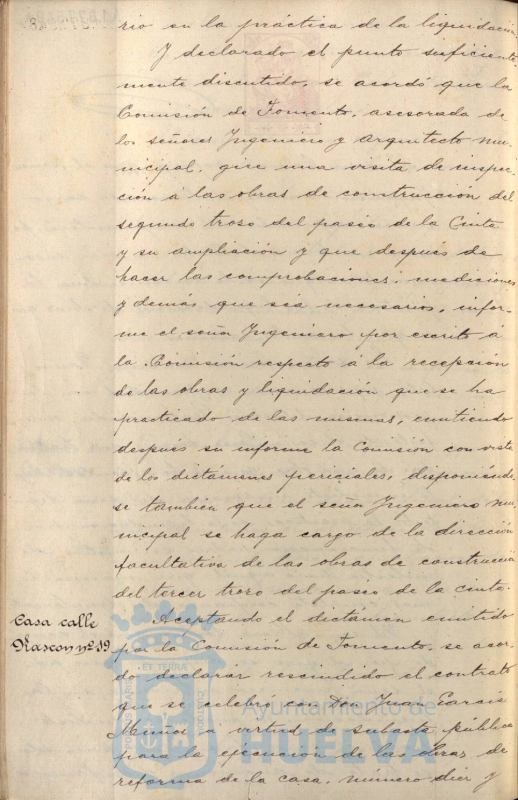 rio en la práctica de la liquidación.
Y declarado el punto suficiente-
mente discutido, se acordó que la
Comisión de Fomento, asesorada de
los señores Ingeniero y Arquitecto mu-
nicipal, gire una visita de inspec-
ción á las obras de construcción del
segundo troso del paseo de la Cinta
y su ampliación y que después de
hacer las comprobaciones, mediciones
y demás que sea necesario, infor-
me el señor Ingeniero por escrito á
la Comisión respecto á la recepción
de las obras y liquidación que se ha
practicado de las mismas, emitiendo
después su informe la Comisión con vista
de los dictámenes periciales, disponiéndo-
se también que el señor Ingeniero mu-
nicipal se haga cargo de la dirección
facultativa de las obras de construcción
del tercer trozo del paseo de la cinta.
Casa calle
Rascon nº 19
Aceptando el dictámen emitido
por la Comisión de Fomento, se acor-
dó declarar rescindido el contrato
que se celebró con Don Juan Garcia
Muñoz á virtud de subasta pública
para la ejecución de las obras de
reforma de la casa, número diez y
PORTUS MARIS
ET TERRÆ
CUSTODIA
Ayuntamiento de
HUELVA